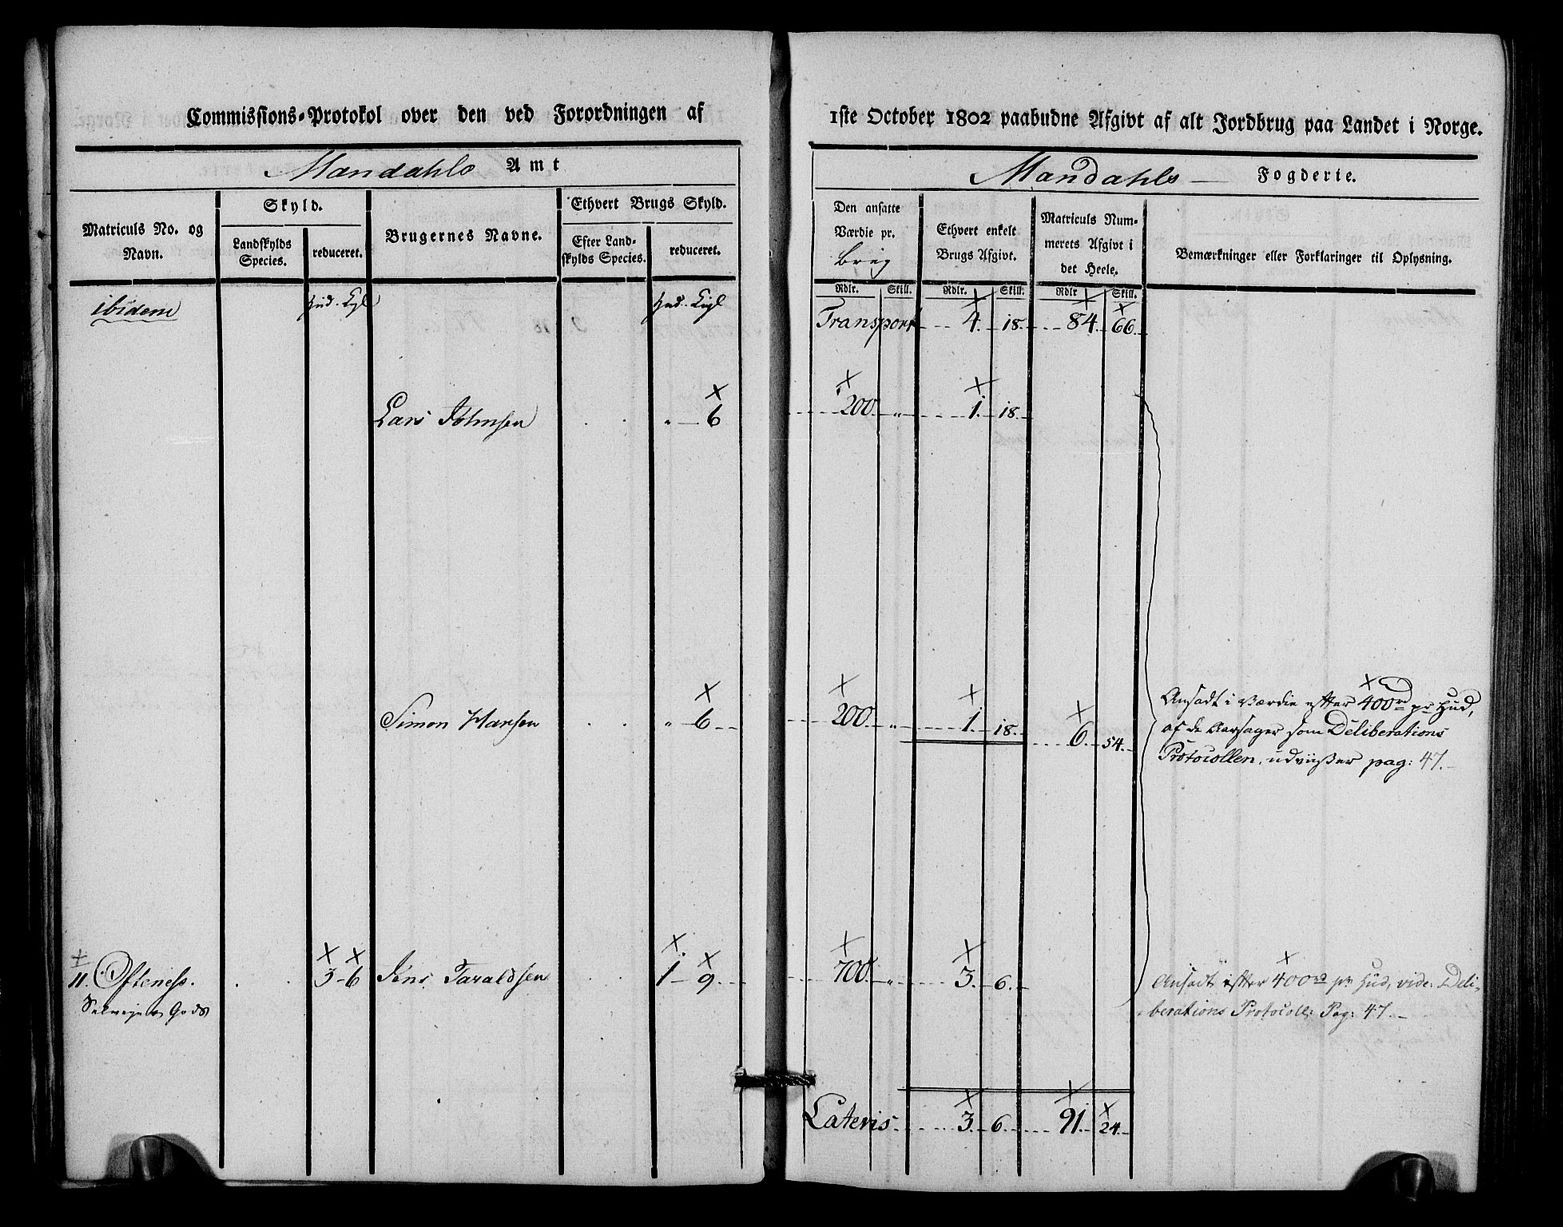 Commissions-Protokol over den ved Forordningen af 1ste October 1802 paabudne Afgivt af alt Jordbrug paa Landet i Norge.
Mandahls Amt
Mandahls Fogderie.
Matriculs No. og Navn.
Skyld.
Landskylds Species.
reduceret.
Brugernes Navne.
Ethvert Brugs Skyld.
Efter Landskylds Species.
reduceret.
Den ansatte Værdie pr. brug
Ethvert enkelt Brugs Afgivt.
Matriculs Nummerets Afgivt i det Heele.
Bemærkninger eller Forklaringer til Oplysning.
Rdlr. Skill. Rdlr. Skill. Rdlr. Skill.
ibidem Hud. Kgl Hud. Kgl. Transport 4. 18. 84. 66.
Lars Johnsen „ 6 200. „ 1. 18.
Simon Hansen „ 6 200. „ 1. 18. 6. 54.
Ansadt i Værdie efter 400 rd pr Hud,
af de Aarsager som Deliberations
Protocollen, udviiser pag: 47.
11. Ofteness. 3 6 Jens Taraldsen 1 9 700. „ 3. 6.
Selveier Gods
Ansadt efter 400 rd pr Hud, vide. Deli-
berations Protocoll: Pag: 47.
Lateris 3. 6. 91. 24.